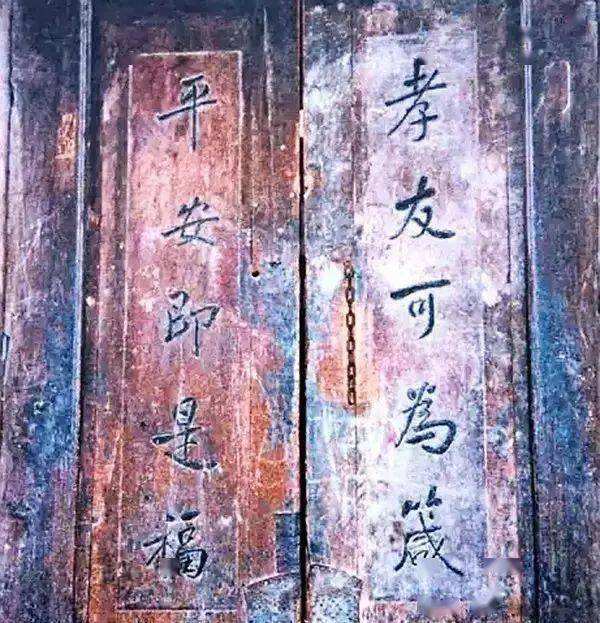 孝友可為箴
平安即是福